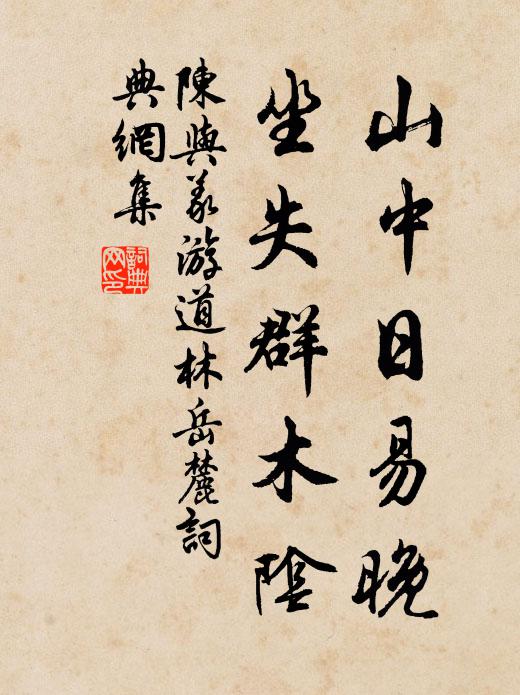 山中日易晚
坐失群木陰
陳與義游道林岳麓詞
典網集
詞典
网印